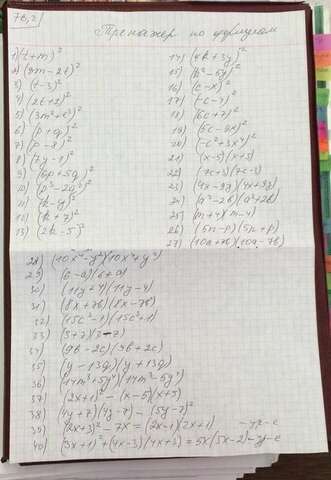 7б,г
Тренажер по формулам
1) (t+m)²
2) (9m-2t)²
3) (t-3)²
4) (2t+2)²
5) (3m²+c)²
6) (p+q)²
7) (p-8)²
8) (7y-1)²
9) (6p+5g)²
10) (p³-2g²)²
11) (k-y)²
12) (k+7)²
13) (2k-5)²
14) (4b+3y)²
15) (b²-5y)²
16) (c-x)²
17) (-c-7)²
18) (6c+7)²
19) (5c-9x)²
20) (-c²+3x⁴)²
21) (x-5)(x+5)
22) (7c+3)(7c-3)
23) (4x-9y)(4x+9y)
24) (a²-2b)(a²+2b)
25) (m+4)(m-4)
26) (5n-p)(5n+p)
27) (10a+7b)(10a-7b)
28) (10x⁴-y²)(10x⁴+y²)
29) (6-a)(6+a)
30) (11y+4)(11y-4)
31) (8x+7b)(8x-7b)
32) (15c²-1)(15c²+1)
33) (5+7)(5-7)
34) (9b-2c)(9b+2c)
35) (y-13g)(y+13g)
36) (14m³+5y⁴)(14m³-5y⁴)
37) (2x+1)²-(x-5)(x+5)
38) (4y+7)(4y-7)-(5y-7)²
39) (2x+3)²-7x=(2x-1)(2x+1)
40) (3x+1)²+(4x-3)(4x+3)=5x(5x-2)